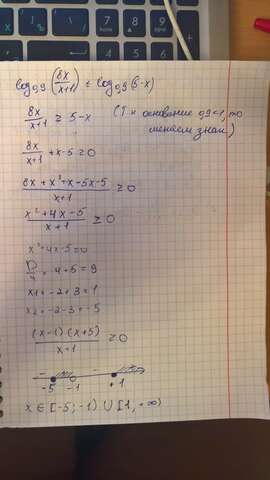 log₀,₉(8x/x+1) ≤ log₀,₉(5-x)
8x/x+1 ≥ 5-x (Т.к основание 0,9<1, то
меняем знак)
8x/x+1 +x-5 ≥ 0
8x+x²+x-5x-5/x+1 ≥ 0
x²+4x-5/x+1 ≥ 0
x²+4x-5=0
D/4 = 4+5=9
x₁=-2+3=1
x₂=-2-3=-5
(x-1)(x+5)/x+1 ≥ 0
-5 -1 +1
x ∈ [-5;-1) ∪ [1,+∞)